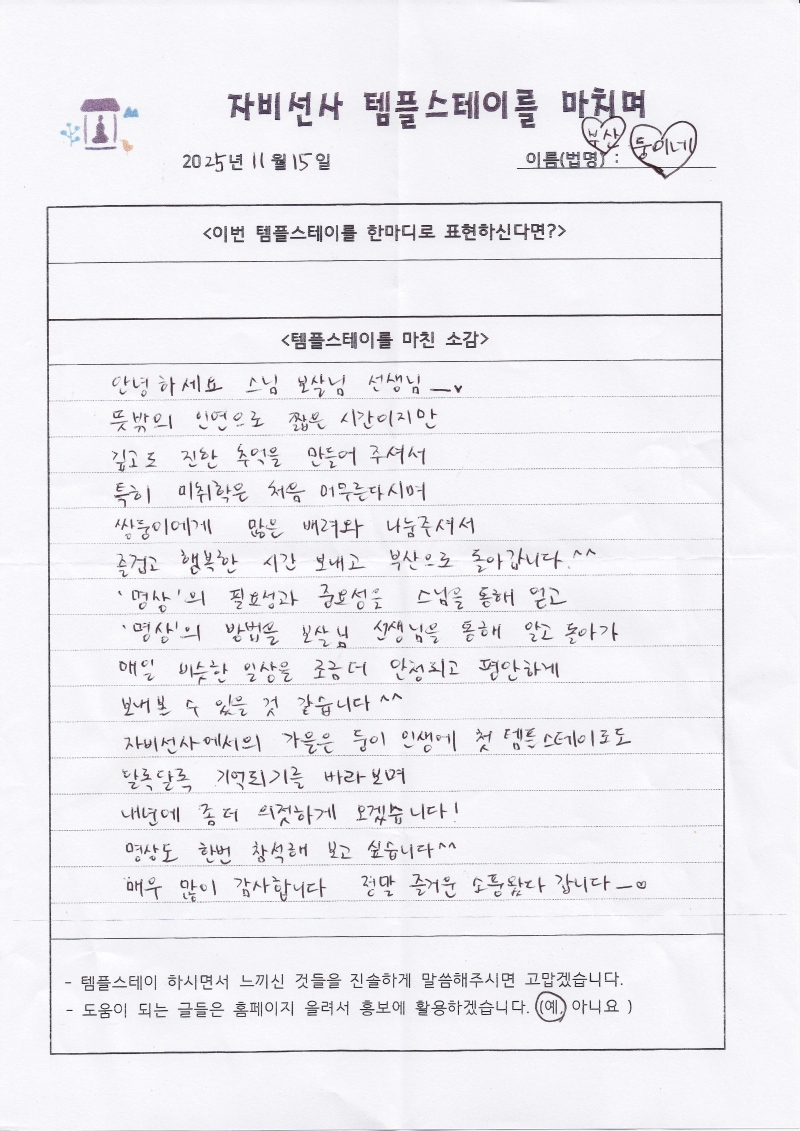 자비선사 템플스테이를 마치며
2025년 11월 15일
이름(법명) : 부산 둥이네
<이번 템플스테이를 한마디로 표현하신다면?>
<템플스테이를 마친 소감>
안녕하세요 스님 보살님 선생님
뜻밖의 인연으로 짧은 시간이지만
깊고도 진한 추억을 만들어 주셔서
특히 미취학은 처음 머무른다시며
쌍둥이에게 많은 배려와 나눔주셔서
즐겁고 행복한 시간 보내고 부산으로 돌아갑니다.^^
'명상'의 필요성과 중요성을 스님을 통해 얻고
'명상'의 방법을 보살님 선생님을 통해 알고 돌아가
매일 비슷한 일상을 조금 더 안정되고 편안하게
보내볼 수 있을 것 같습니다^^
자비선사에서의 가을은 둥이 인생에 첫 템플스테이로도
알록달록 기억되기를 바라보며
내년에 좀 더 의젓하게 오겠습니다!
명상도 한번 참석해 보고 싶습니다^^
매우 많이 감사합니다 정말 즐거운 소풍왔다 갑니다
- 템플스테이 하시면서 느끼신 것들을 진솔하게 말씀해주시면 고맙겠습니다.
- 도움이 되는 글들은 홈페이지 올려서 홍보에 활용하겠습니다. (예, 아니요 )